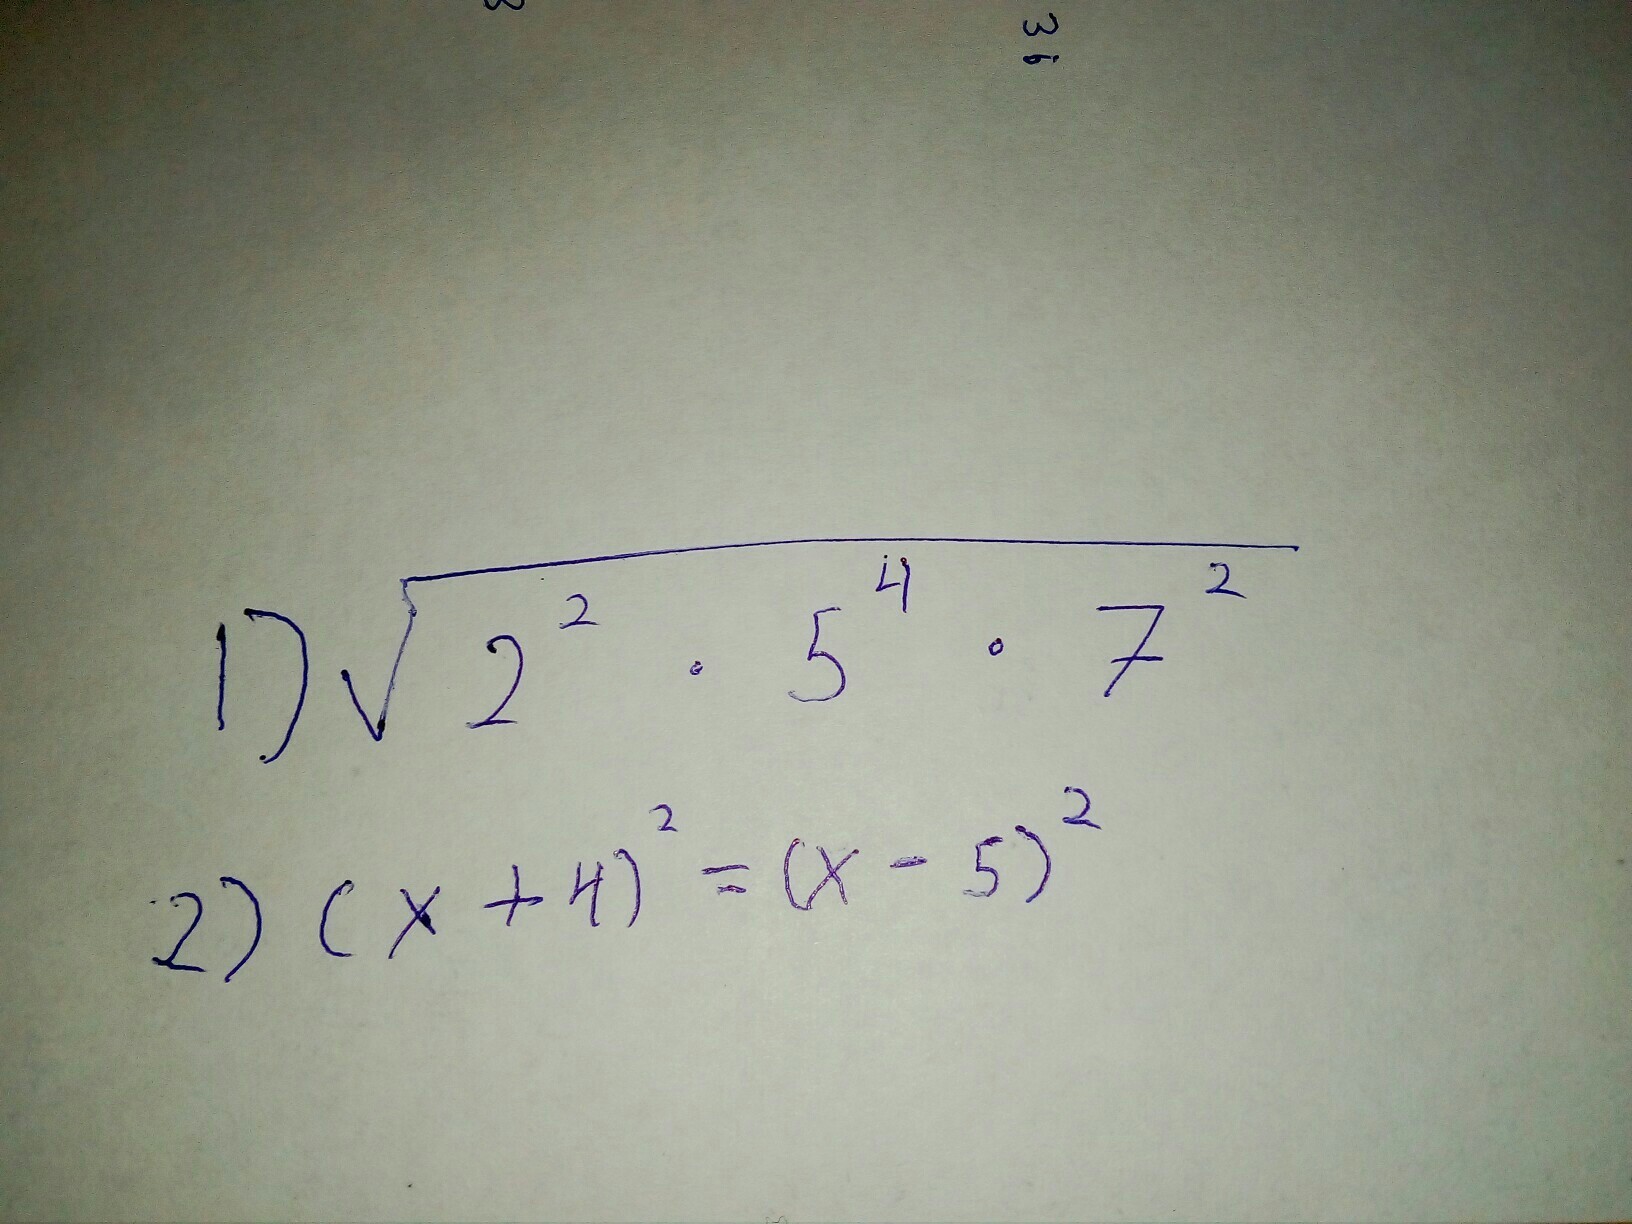 1) √(2² · 5⁴ · 7²)
2) (x + 4)² = (x - 5)²